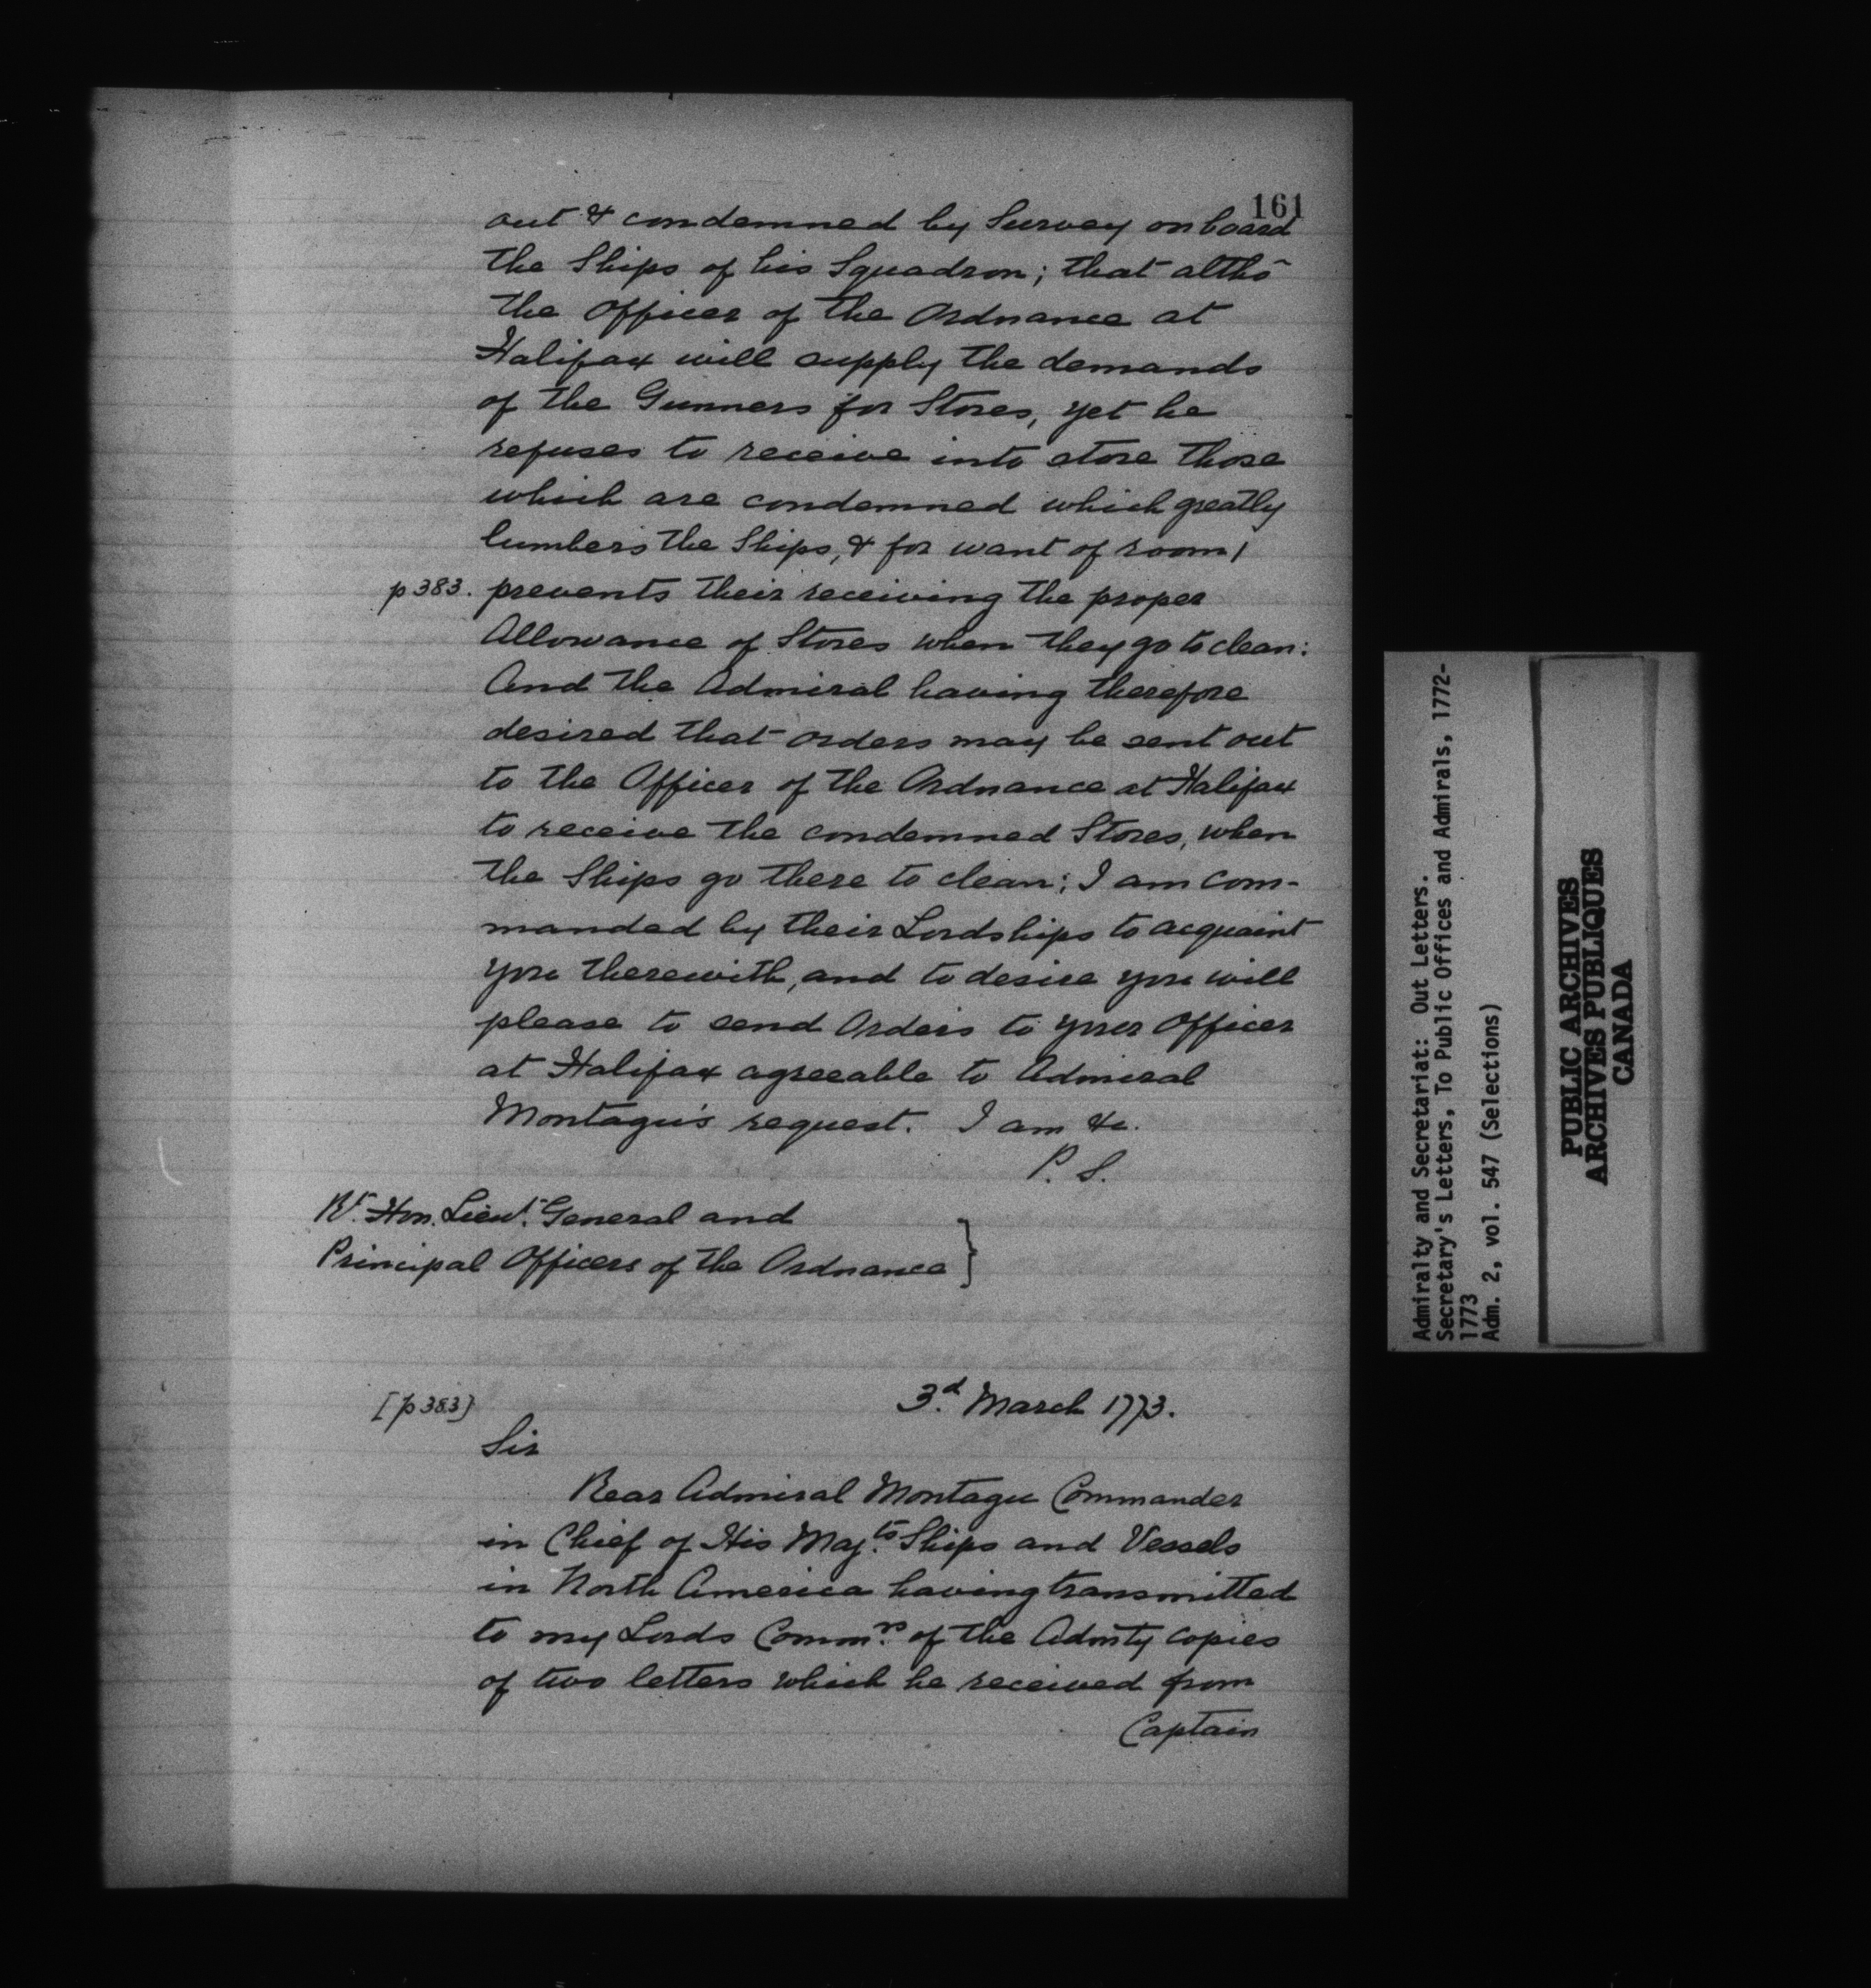 161
out & condemned by Survey on board
the Ships of his Squadron; that altho
the Officer of the Ordnance at
Halifax will supply the demands
of the Gunners for Stores, yet he
refuses to receive into store those
which are condemned which greatly
lumbers the Ships, & for want of room /
p 383. prevents their receiving the proper
Allowance of Stores when they go to clean:
And the Admiral having therefore
desired that orders may be sent out
to the Officer of the Ordnance at Halifax
to receive the condemned Stores, when
the Ships go there to clean; I am com-
manded by their Lordships to acquaint
you therewith, and to desire you will
please to send Orders to your Officer
at Halifax agreeable to Admiral
Montagu's request. I am &c.
P. S.
Rt. Hon. Lieut. General and
Principal Officers of the Ordnance }
[p 383] 3d. March 1773.
Sir
Rear Admiral Montagu Commander
in Chief of His Maj.ts Ships and Vessels
in North America having transmitted
to my Lords Commrs. of the Admty copies
of two letters which he received from
Captain
Admiralty and Secretariat: Out Letters.
Secretary's Letters, To Public Offices and Admirals, 1772-
1773
Adm. 2, vol. 547 (Selections)
PUBLIC ARCHIVES
ARCHIVES PUBLIQUES
CANADA